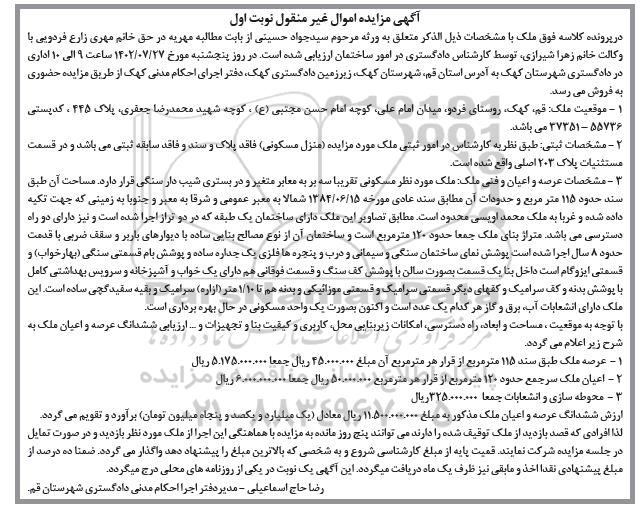 آگهی مزایده اموال غیر منقول نوبت اول
درپرونده کلاسه فوق ملک با مشخصات ذیل الذکر متعلق به ورثه مرحوم سیدجواد حسینی از بابت مطالبه مهریه در حق خانم مهری زارع فردویی با
وکالت خانم زهرا شیرازی، توسط کارشناس دادگستری در امور ساختمان ارزیابی شده است. در روز پنجشنبه مورخ ۱۴۰۲/۰۷/۲۷ ساعت ۹ الی ۱۰ اداری
در دادگستری شهرستان کهک به آدرس استان قم، شهرستان کهک، زیرزمین دادگستری کهک، دفتر اجرای احکام مدنی کهک از طریق مزایده حضوری
به فروش می رسد.
۱ – موقعیت ملک: قم، کهک، روستای فردو، میدان امام علی، کوچه امام حسن مجتبی (ع) ، کوچه شهید محمدرضا جعفری، پلاک ۴۴۵ ، کدپستی
۵۵۷۳۶ – ۳۷۳۵۱ می باشد.
۲ – مشخصات ثبتی: طبق نظریه کارشناس در امور ثبتی ملک مورد مزایده (منزل مسکونی) فاقد پلاک و سند و فاقد سابقه ثبتی می باشد و در قسمت
مستثنیات پلاک ۲۰۳ اصلی واقع شده است.
۳ – مشخصات عرصه و اعیان و فنی ملک: ملک مورد نظر مسکونی تقریبا سه بر به معابر متغیر و در بستری شیب دار سنگی قرار دارد. مساحت آن طبق
سند حدود ۱۱۵ متر مربع و حدودات آن مطابق سند عادی مورخه ۱۳۸۴/۰۶/۱۵ شمالا به معبر عمومی و شرقا به معبر و جنوبا به زمینی که جهت تکیه
داده شده و غربا به ملک محمد اویسی محدود است. مطابق تصاویر این ملک دارای ساختمان یک طبقه که در دو تراز اجرا شده است و نیز دارای دو راه
دسترسی می باشد. متراژ بنای ملک جمعا حدود ۱۲۰ مترمربع است و ساختمان آن از نوع مصالح بنایی ساده با دیوارهای باربر و سقف ضربی با قدمت
حدود ۸ سال اجرا شده است پوشش نمای ساختمان سنگی و سیمانی و درب و پنجره ها فلزی یک جداره ساده و پوشش بام قسمتی سنگی (بهارخواب) و
قسمتی ایزوگام است داخل بنا یک قسمت بصورت سالن با پوشش کف سنگ و قسمت فوقانی هم دارای یک خواب و آشپزخانه و سرویس بهداشتی کامل
با پوشش بدنه و کف سرامیک و کفهای دیگر قسمتی سرامیک و قسمتی موزائیکی و بدنه هم تا ۱/۱۰ متر (ازاره) سرامیک و بقیه سفیدگچی ساده است. این
ملک دارای انشعابات آب، برق و گاز هر کدام یک عدد است و اکنون بصورت یک واحد مسکونی در حال بهره برداری است.
با توجه به موقعیت ، مساحت و ابعاد، راه دسترسی، امکانات زیربنایی محل، کاربری و کیفیت بنا و تجهیزات و ... ارزیابی ششدانگ عرصه و اعیان ملک به
شرح زیر اعلام می گردد.
۱ – عرصه ملک طبق سند ۱۱۵ مترمربع از قرار هر مترمربع آن مبلغ ۴۵.۰۰۰.۰۰۰ ریال جمعا ۵.۱۷۵.۰۰۰.۰۰۰ ریال
۲ – اعیان ملک سرجمع حدود ۱۲۰ مترمربع از قرار هر مترمربع ۵۰.۰۰۰.۰۰۰ ریال جمعا ۶.۰۰۰.۰۰۰.۰۰۰ ریال
۳ – محوطه سازی و انشعابات جمعا ۳۲۵.۰۰۰.۰۰۰ریال
ارزش ششدانگ عرصه و اعیان ملک مذکور به مبلغ ۱۱.۵۰۰.۰۰۰.۰۰۰ ریال معادل (یک میلیارد و یکصد و پنجاه میلیون تومان) برآورد و تقویم می گردد.
لذا افرادی که قصد بازدید از ملک توقیف شده را دارند می توانند پنج روز مانده به مزایده با هماهنگی این اجرا از ملک مورد نظر بازدید و در صورت تمایل
در جلسه مزایده شرکت نمایند. قمیت پایه از مبلغ کارشناسی شروع و به شخصی که بالاترین مبلغ را پیشنهاد دهد واگذار می گردد. ضمنا ده درصد از
مبلغ پیشنهادی نقدا اخذ و مابقی نیز ظرف یک ماه دریافت میگردد. این آگهی یک نوبت در یکی از روزنامه های محلی درج میگردد.
رضا حاج اسماعیلی – مدیردفتر اجرا احکام مدنی دادگستری شهرستان قم.